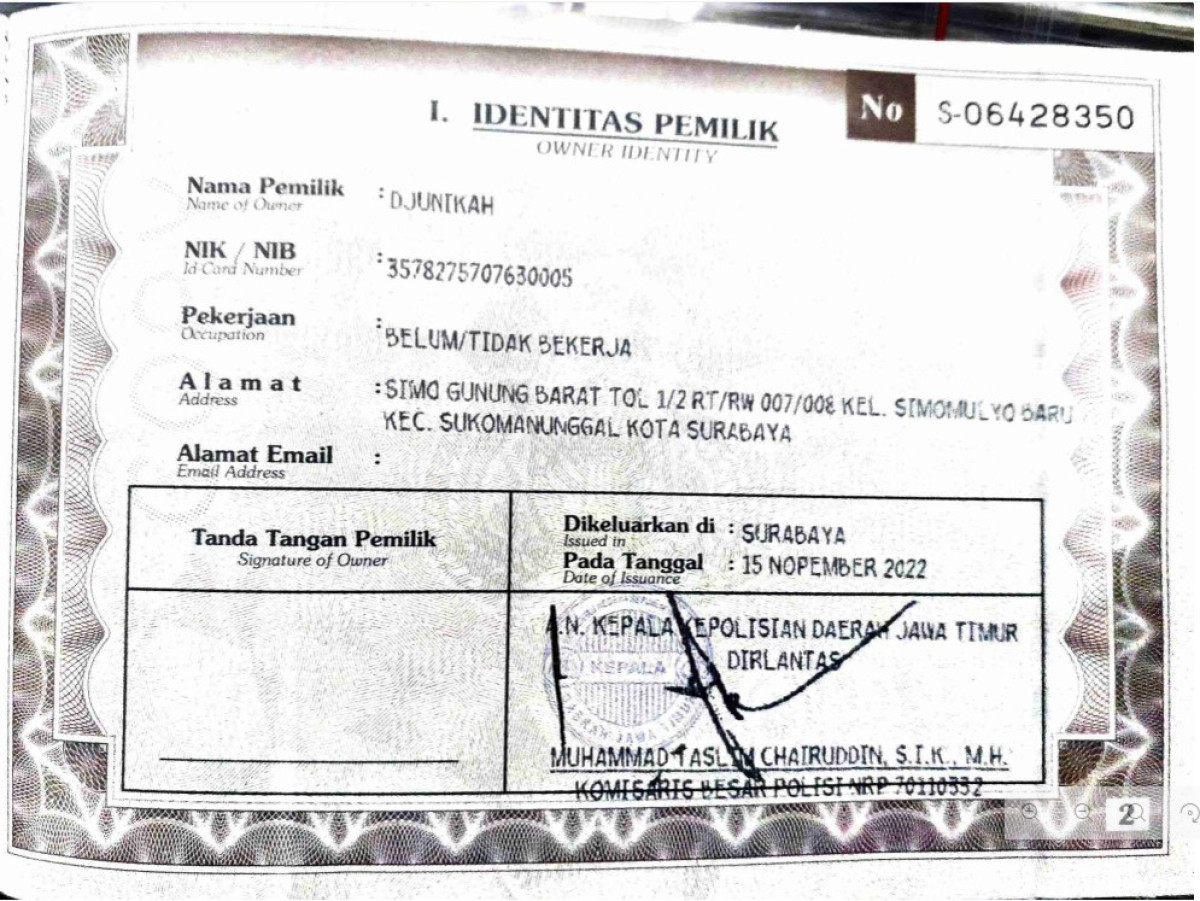 No S-06428350
I. IDENTITAS PEMILIK
OWNER IDENTITY
Nama Pemilik : DJUNIKAH
Name of Owner
NIK / NIB : 3578275707630005
Id Card Number
Pekerjaan : BELUM/TIDAK BEKERJA
Occupation
Alamat : SIMO GUNUNG BARAT TOL 1/2 RT/RW 007/008 KEL. SIMOMULYO BARU
Address
KEC. SUKOMANUNGGAL KOTA SURABAYA
Alamat Email :
Email Address
Tanda Tangan Pemilik
Signature of Owner
Dikeluarkan di : SURABAYA
Issued in
Pada Tanggal : 15 NOPEMBER 2022
Date of Issuance
A.N. KEPALA KEPOLISIAN DAERAH JAWA TIMUR
DIRLANTAS
KEPALA
MUHAMMAD TASLIM CHAIRUDDIN, S.I.K., M.H.
KOMISARIS BESAR POLISI NRP 70110332
2